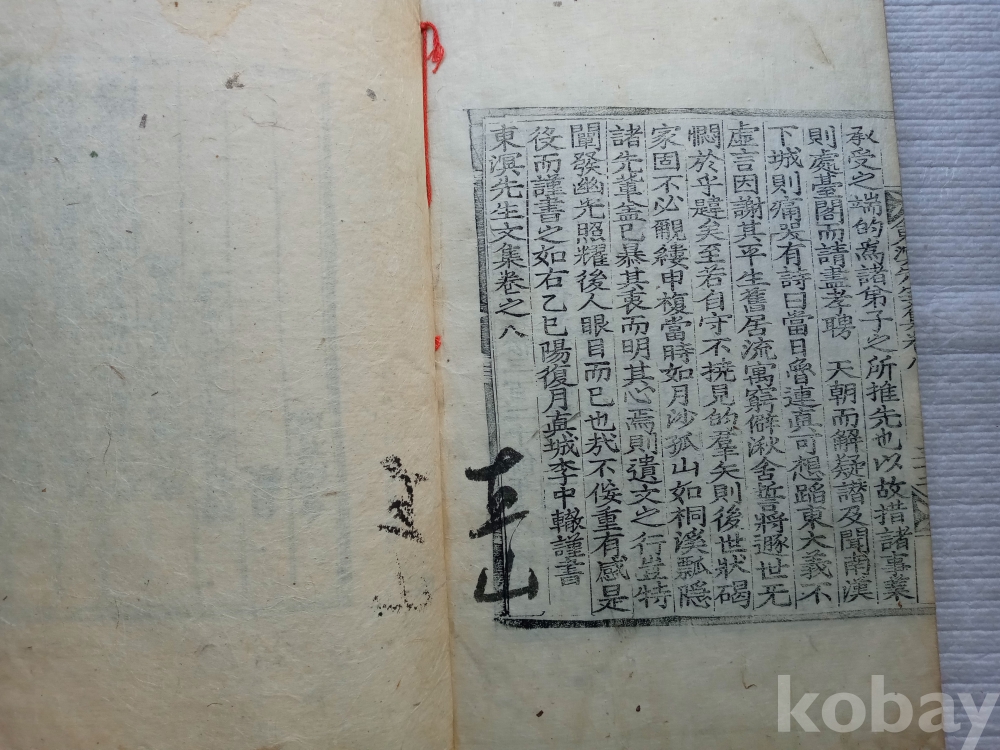 承受之端的爲諸弟子之所推先也以故措諸事業
則處臺閣而請盡孝聘 天朝而解疑謗及聞南漢
下城則痛哭有詩曰當日魯連真可想蹈東大義不
虛言因謝其平生舊居流寓窮僻湫舍誓將遯世旡
憫於乎韙矣至若自守不撓見的羣矢則後世狀碣
家固不必覼縷申複當時如月沙孤山如桐溪瓢隱
諸先輩盆已暴其衷而明其心焉則遺文之行豈特
闡發幽光照耀後人眼目而已也㢤不侫重有感是
役而謹書之如右乙巳陽復月真城李中轍謹書
東溟先生文集卷之八
kobay